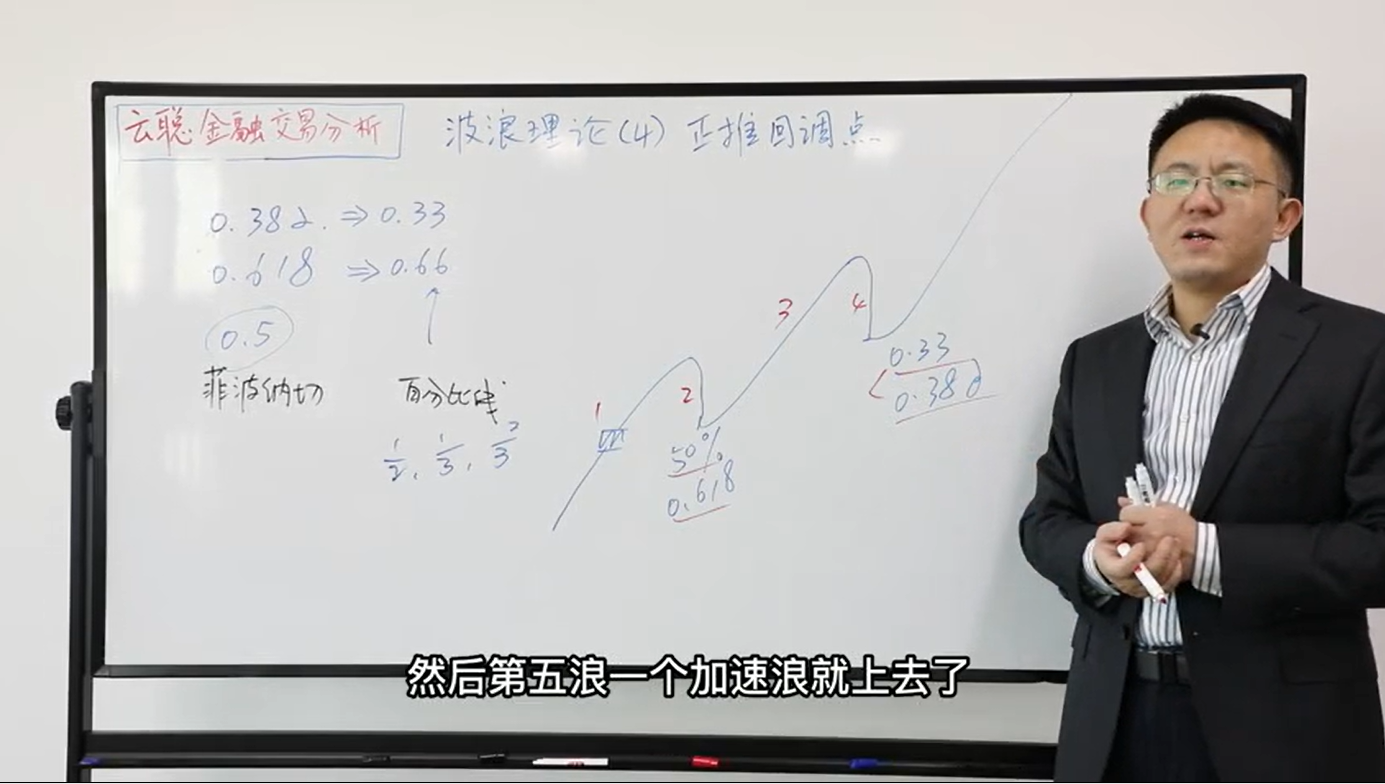 云聪金融交易分析
波浪理论(4) 正推回调点
0.382. ⇒ 0.33
0.618 ⇒ 0.66
0.5
菲波纳切
百分比线
1/2, 1/3, 2/3
1
2
3
4
50%
0.618
0.33
0.382
然后第五浪一个加速浪就上去了